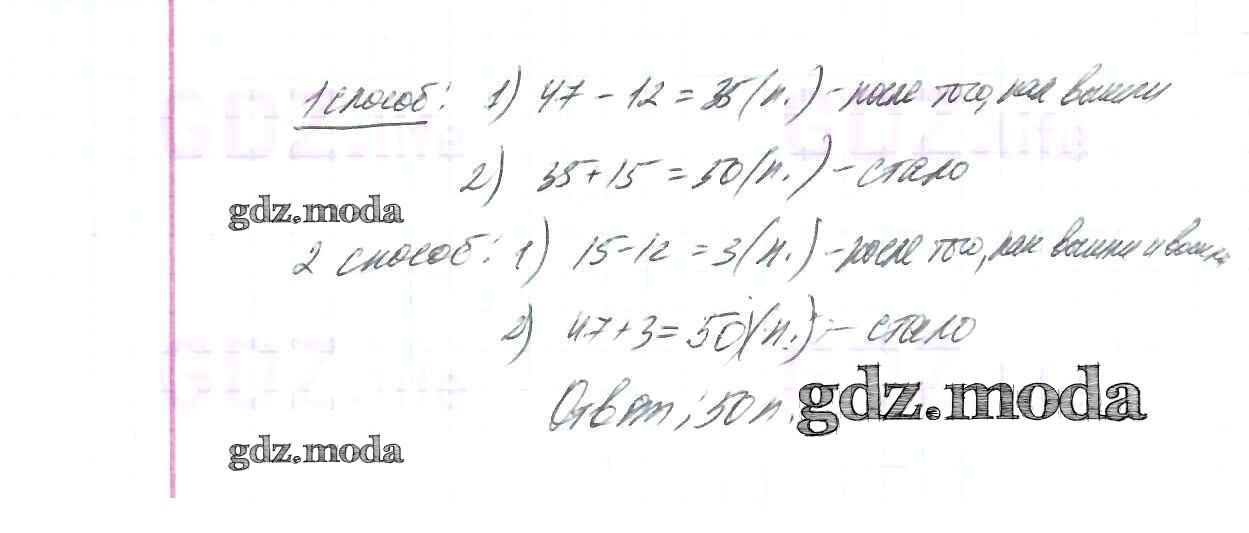 1 способ: 1) 47 - 12 = 35 (п.) - после того, как вышли
2) 35 + 15 = 50 (п.) - стало
gdz.moda
2 способ: 1) 15 - 12 = 3 (п.) - после того, как вышли и вошли
2) 47 + 3 = 50 (п.) - стало
Ответ: 50 п.
gdz.moda
gdz.moda